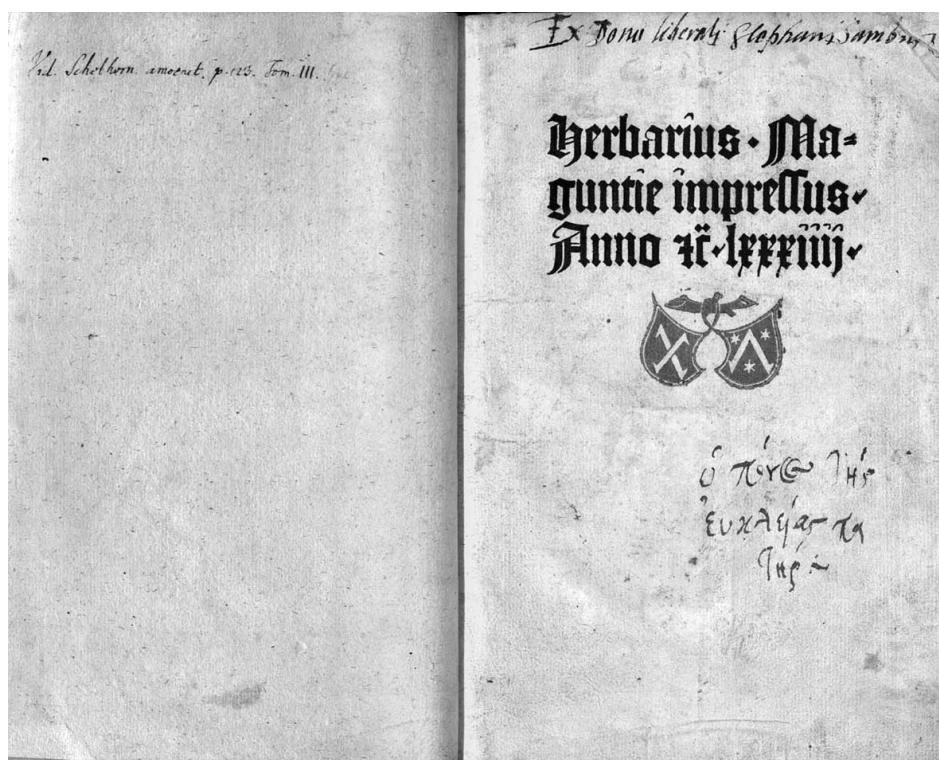 Vid. Schelhorn. amoenit. p. 123. Tom. III.
Ex Dono liberali
Herbarius · Ma⸗
guntie impressus.
Anno ⁊c̈. lxxxiiij.
ὁ πόνος τῆς
ἐυκλείας πα
τήρ